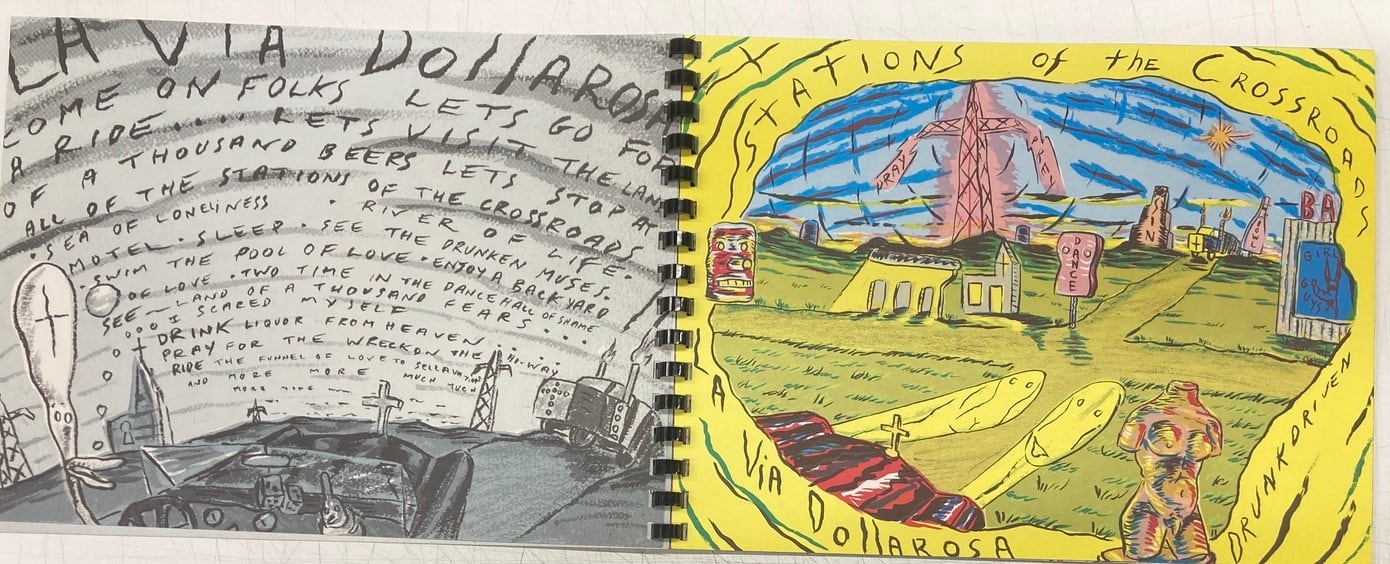 LA VIA DollAROSA
COME ON FOLKS LETS GO FOR
A RIDE.... LETS VISIT THE LAND
OF A THOUSAND BEERS LETS STOP AT
ALL OF THE STATIONS OF THE CROSSROADS
· SEA OF LONELINESS · RIVER OF LIFE ·
MOTEL · SLEEP · SEE THE DRUNKEN MUSES.
· SWIM THE POOL OF LOVE · ENJOY A BACKYARD
OF LOVE · TWO TIME IN THE DANCEHALL OF SHAME
SEE LAND OF A THOUSAND FEARS ...
I SCARED MYSELF
DRINK LIQUOR FROM HEAVEN ....
PRAY FOR THE WRECK ON THE HO-WAY
RIDE THE FUNNEL OF LOVE TO SELLAVATION
AND MORE MORE MUCH MUCH
MORE MORE
STATIONS of the CROSSROADS
PRAY
DANCE
BA
GIRL
LA VIA DollAROSA
DRUNKDRIVEN